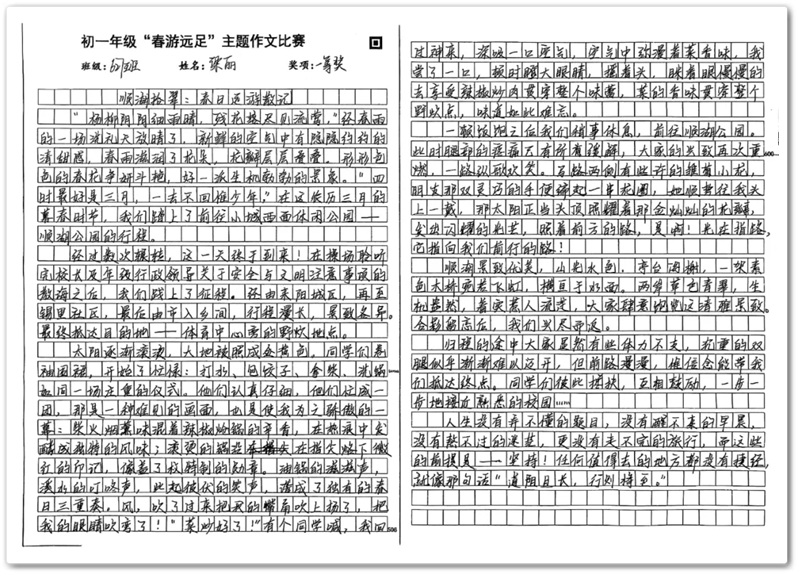 初一年级“春游远足”主题作文比赛
班级： 姓名： 奖项：一等奖
顺湖拾翠：春日远游散记
“杨柳阴阴细雨晴，残花落尽见流莺。”经春雨
的一场洗礼天放晴了，新鲜的空气中有隐隐约约的
清甜感，春雨滋润了花朵，花瓣层层叠叠。形形色
色的春花争妍斗艳，好一派生机勃勃的景象。“四
时最好是三月，一去不回唯少年。”在这候历三月的
暮春时节，我们踏上了前往小城西面休闲公园——
顺湖公园的行程。
经过数次操练，这一天终于到来！在操场聆听
完校长及年级行政领导关于安全与文明注意事项的
教诲之后，我们踏上了征程。途由来阳城区，再至
锦里社区，最后由市入乡间，行程漫长，景致各异。
最终抵达目的地——体育中心旁的野炊地点。
太阳逐渐滚烫，大地被照成金黄色。同学们卷
袖围裙，开始了忙碌：打扫、包饺子、拿柴、洗锅
如同一场庄重的仪式。他们认真仔细，他们忙成一
团，那是一种难见的画面，也是使我为之骄傲的一
幕：柴火烟熏味混着辣椒炒锅的辛香，在热浪中交
酿成独特的风味；滚烫的锅没 在指尖烙下微
红的印记，像盖了枚特制的勋章。油锅的滋滋声，
溪水的叮咚声，此起彼伏的笑声，谱成了独有的春
日三重奏。风，吹了过来把我的嘴角吹上扬了，把
我的眼睛吹弯了！“菜炒好了！”有个同学喊，我回
过神来，深吸一口空气，空气中弥漫着菜香味，我
尝了一口，顿时瞪大眼睛，摇着头，眯着眼慢慢的
去享受辣椒炒肉贯穿整个味蕾，菜的香味贯穿整个
野炊点，味道如此难忘。
一顿饭饱之后我们稍事休息，前往顺湖公园。
此时腿部的疼痛大有所有缓解，大家的兴致再次重
燃，一路欢歌欢笑。马路两向有些许的雏菊小花，
朋友那双灵巧的手便编起一串花圈，她顺带往我头
上一戴，那太阳正当头顶照耀着那金灿灿的花瓣，
变成闪耀的光芒，照着前方的路，是啊！光在指路，
它指向我们前行的路！
顺湖景致优美，山光水色，亭台阁榭，一架素
色大桥宛若飞虹，横亘于水面。两岸草色青翠，生
机盎然，着实惹人流连，大家肆意饱览这清雅景致。
合影留念后，我们兴尽而返。
归程的途中大家虽然有些体力不支，沉重的双
腿似乎渐渐难以迈开，但前路漫漫，唯信念能带我
们抵达终点。同学们彼此搀扶，互相鼓励，一步一
步地接近熟悉的校园……
人生没有弄不懂的题目，没有醒不来的早晨，
没有熬不过的迷茫，更没有走不完的旅行，而这些
的前提是——坚持！任何值得去的地方都没有捷径，
就像那句话“道阻且长，行则将至。”